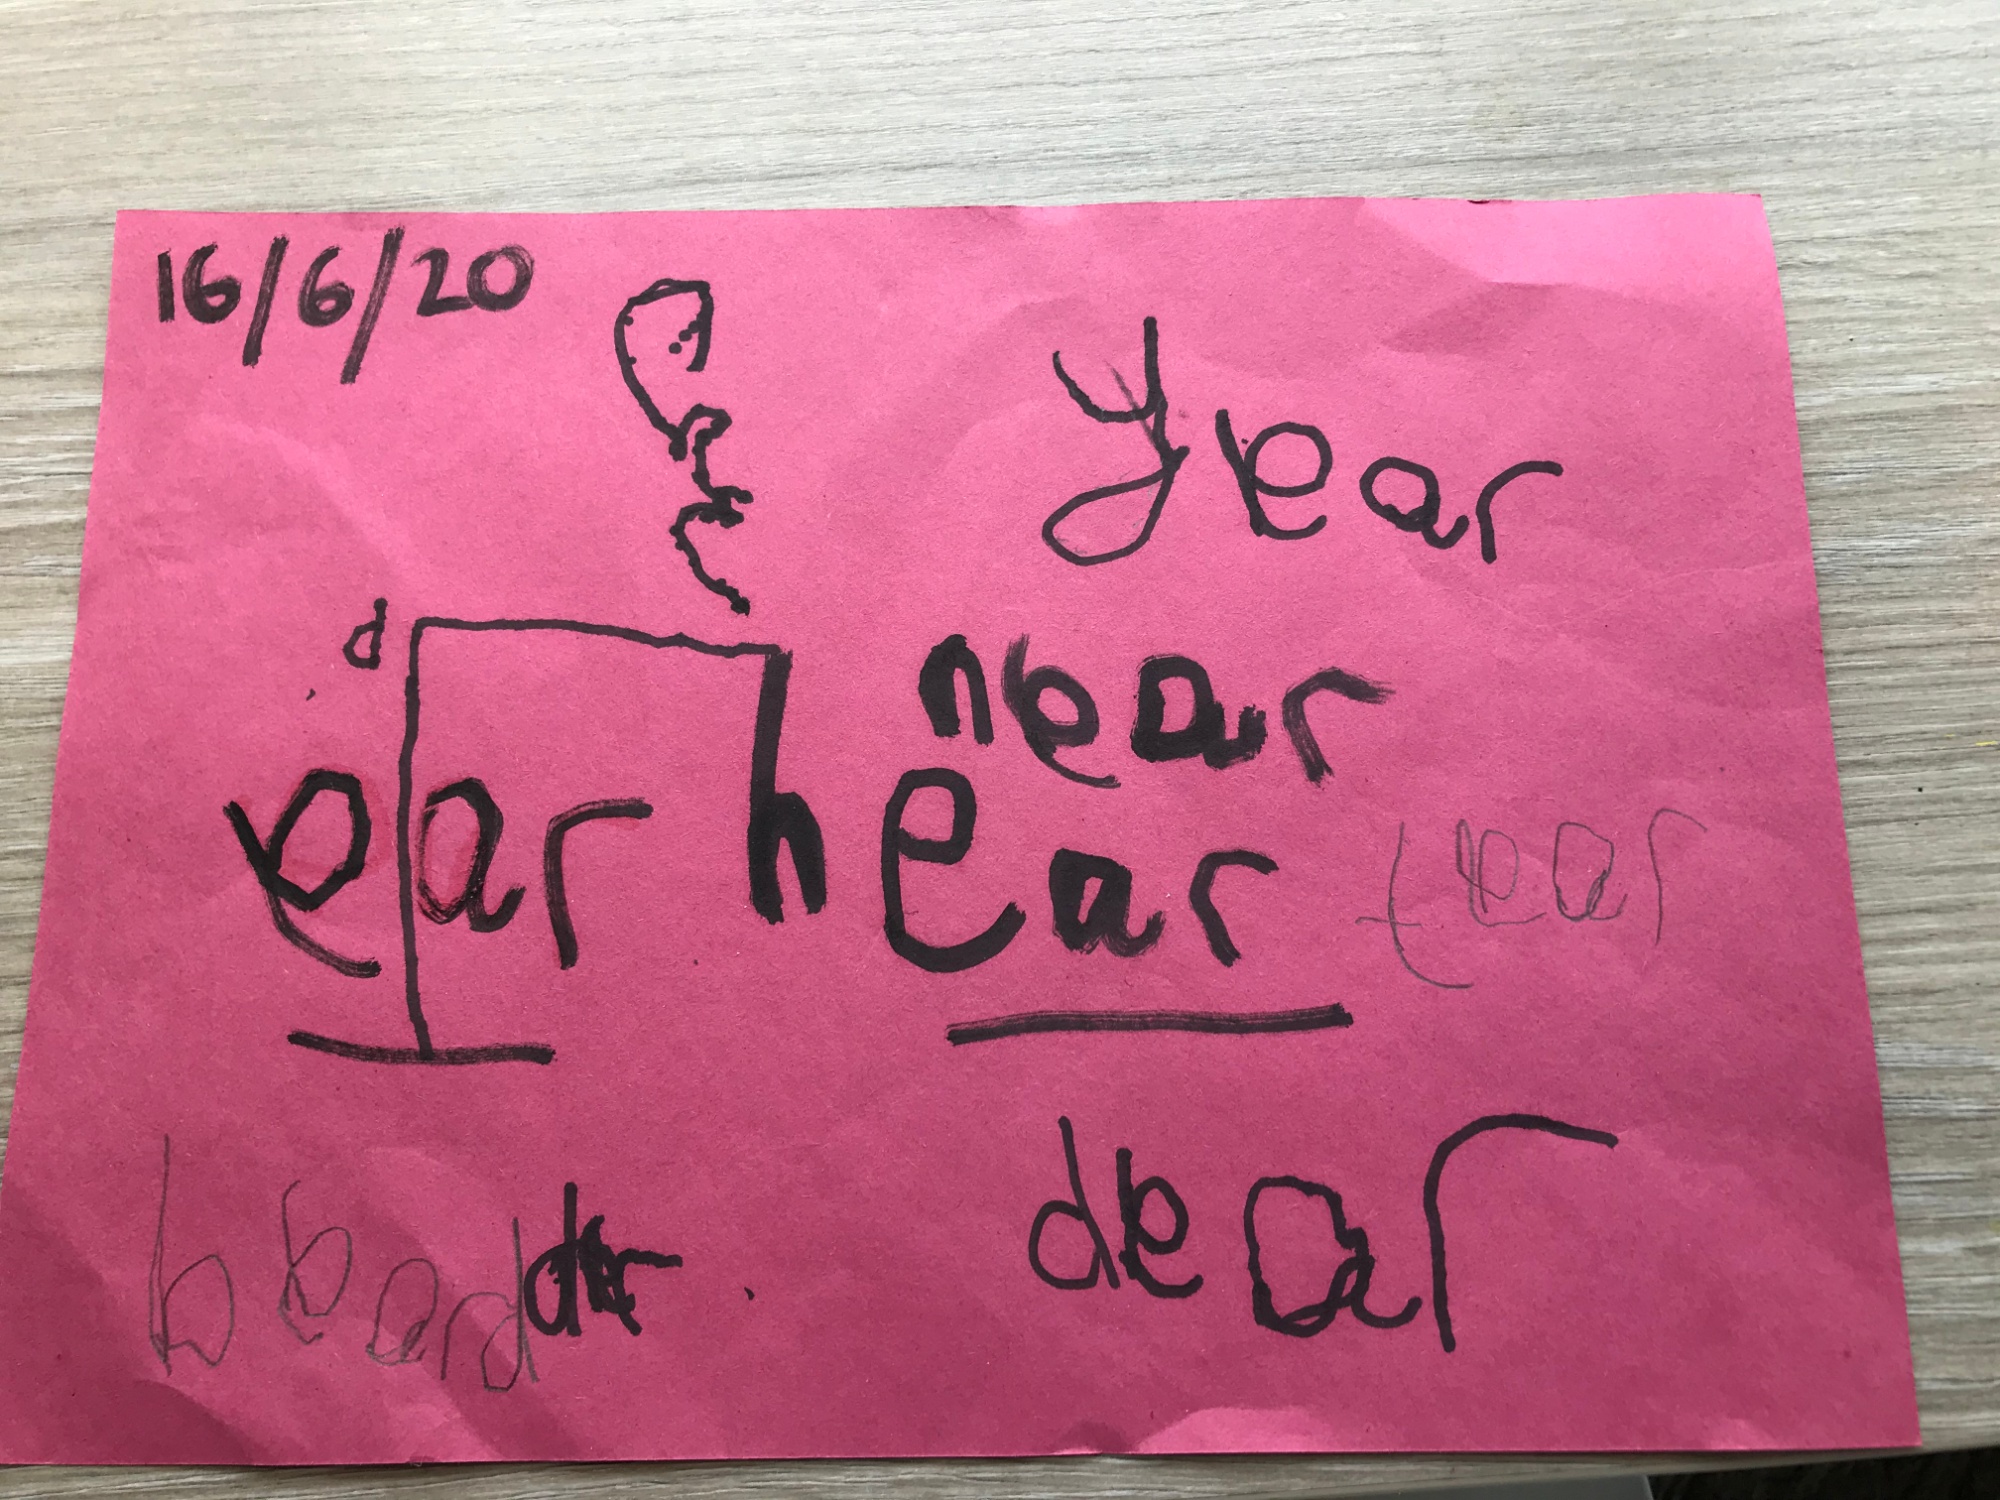 16/6/20
year
d
near
ear hear tear
beard
dear